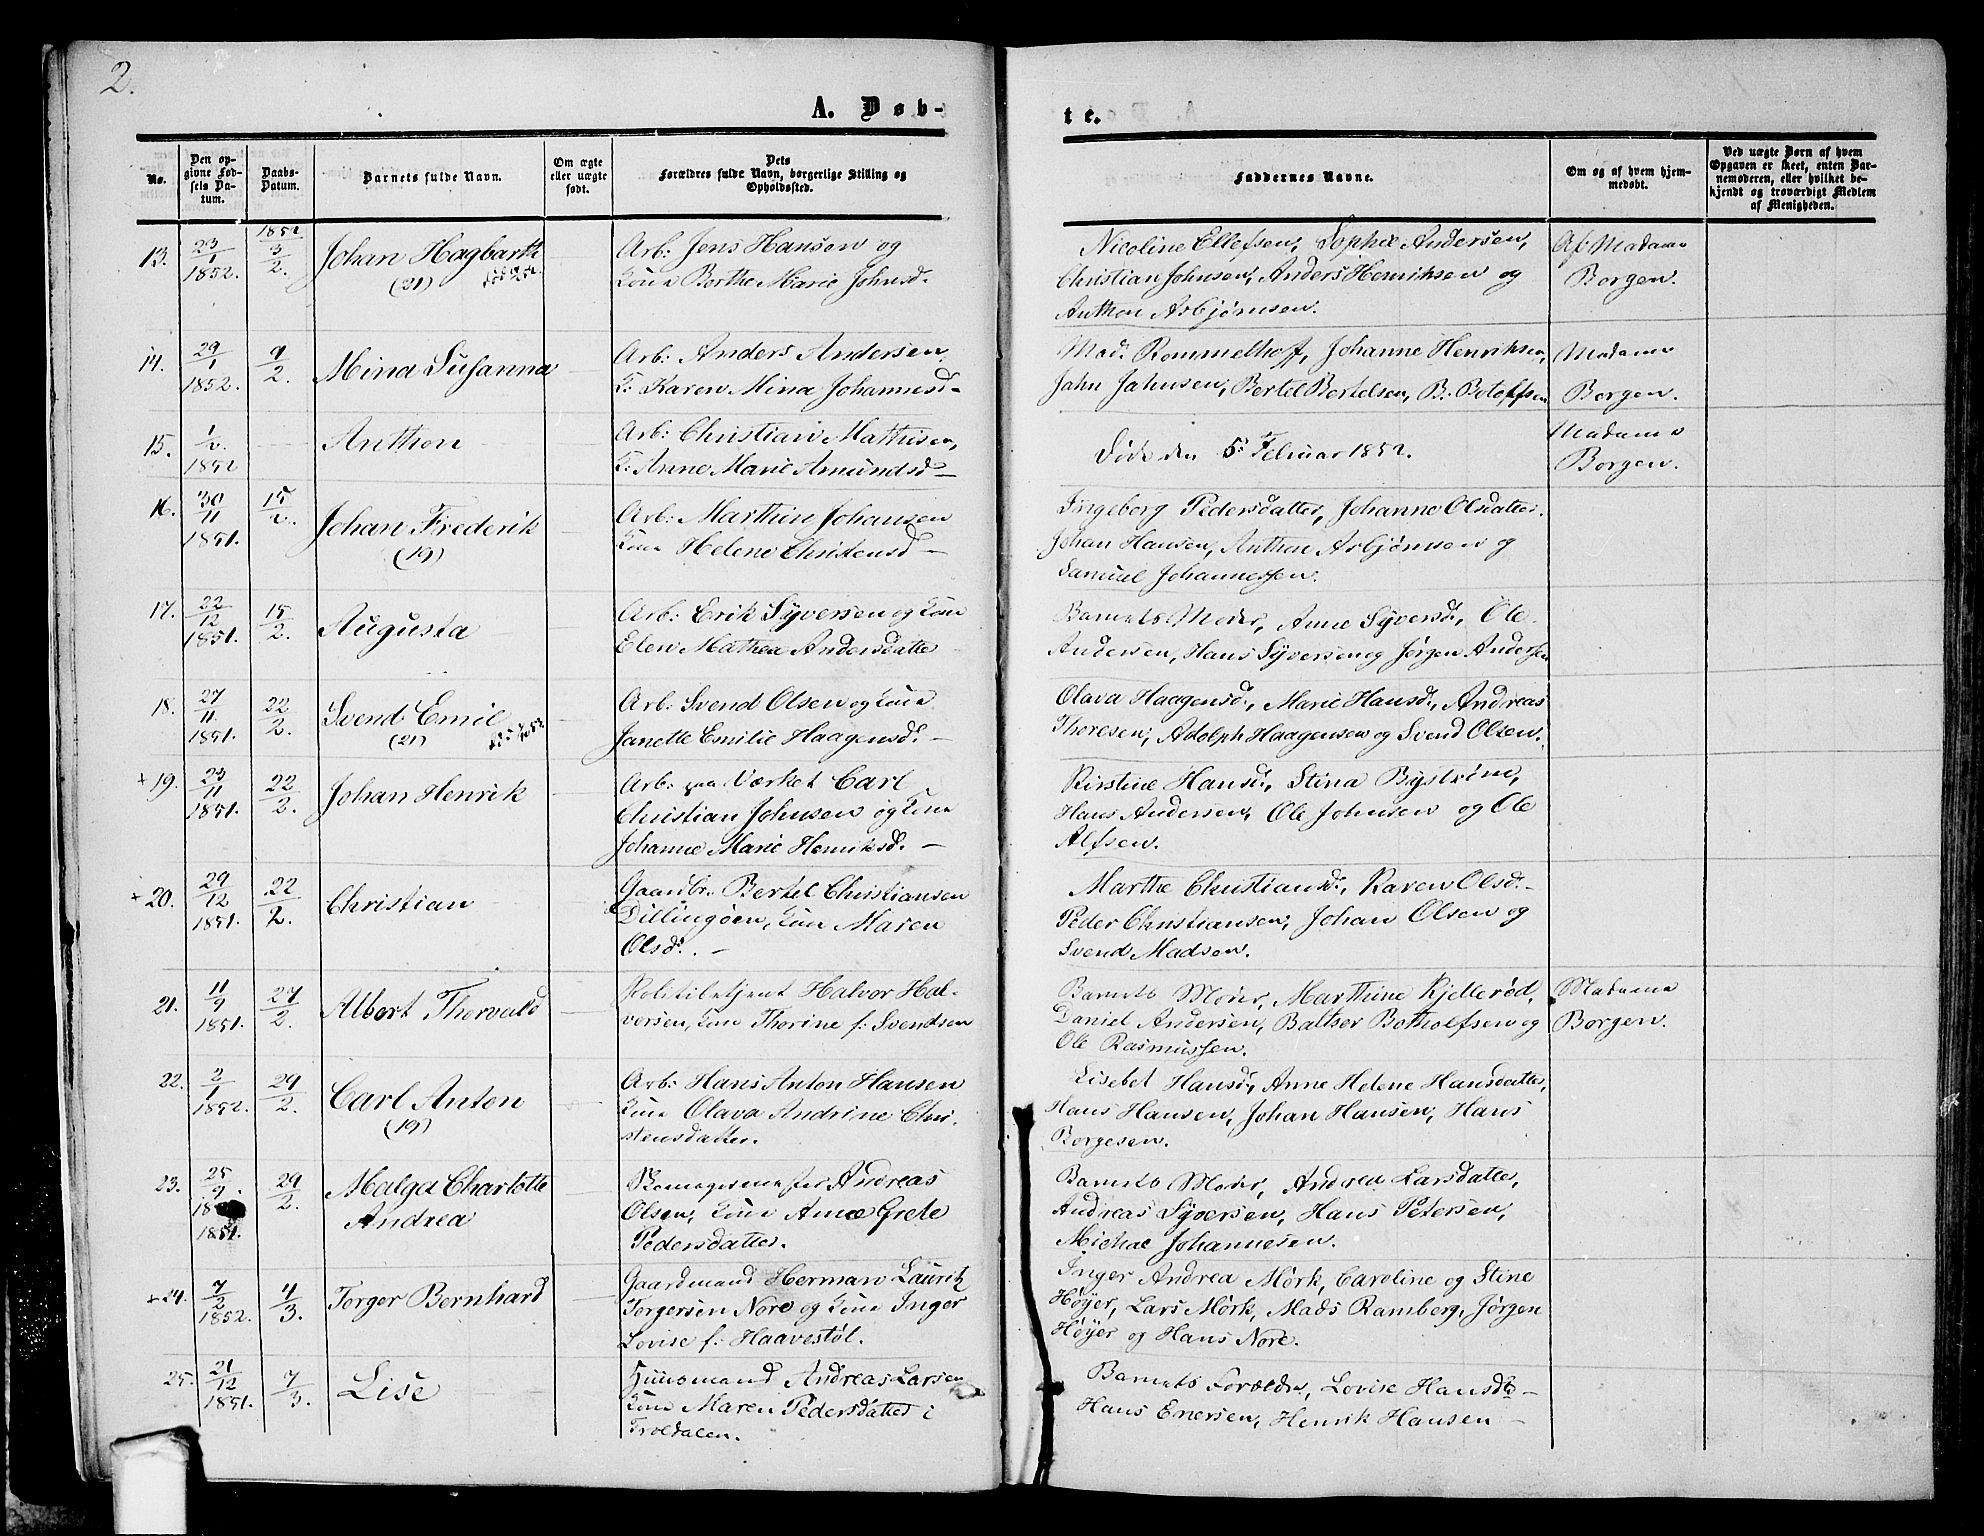 2.
A. Døb-
te.
No.
Den op-
givne Fød-
sels Da-
tum.
Daabs-
Datum.
Barnets fulde Navn.
Om ægte
eller uægte
født.
Dets
Forældres fulde Navn, borgerlige Stilling og
Opholdssted.
Faddernes Navne.
Om og af hvem hjem-
medøbt.
Ved uægte Børn af hvem
Opgaven er skeet, enten Bar-
nemoderen, eller hvilket be-
kjendt og troværdigt Medlem
af Menigheden.
13. 23/1 1852. 1852 3/2. Johan Hagbarth
(21)
Arb: Jens Hansen og
Kone Berthe Marie Johnsd.
Nicoline Ellefsen, Sophie Andersen,
Christian Johnsen, Anders Henriksen og
Anthon Asbjørnsen.
Af Madame
Borgen.
14. 29/1 1852. 9/2. Mina Susanna
Arb: Anders Andersen
K. Karen Mina Johannesd-
Mad. Rommelhoff, Johanne Henriksen,
Jahn Jahnsen, Bertel Bertelsen, B. Botolfsen
Madame
Borgen.
15. 1/2 1852 Anthon
Arb: Christian Mathisen,
K. Anne Marie Amundsd-
Døde den 5. Februar 1852.
Madame
Borgen.
16. 30/11 1851. 15/2. Johan Frederik
(19)
Arb: Marthin Johansen
Kone Helene Christensd-
Ingeborg Pedersdatter, Johanne Olsdatter.
Johan Hansen, Anthon Asbjørnsen og
Samuel Johannessen.
17. 22/12 1851. 15/2. Augusta
Arb: Erik Syversen og Kone
Elen Mathea Andersdatter
Barnets Moder, Anne Syversd, Ole
Andersen, Hans Syversen og Jørgen Andersen
18. 27/11 1851. 22/2. Svend Emil
(21)
Arb: Svend Olsen og Kone
Janette Emilie Haagensd. -
Olava Haagensd, Marie Hansd, Andreas
Thoresen, Adolph Haagensen og Svend Olsen.
+ 19. 23/11 1851. 22/2. Johan Henrik
Arb: paa Værket Carl
Christian Johnsen og Kone
Johanne Marie Henriksd. -
Kirstine Hansd, Stina Byström,
Hans Andersen, Ole Johnsen og Ole
Alfsen.
+ 20. 29/12 1851. 22/2. Christian
Gaardbr. Bertel Christiansen
Dillingøen, Kone Maren
Olsd. -
Marthe Christiansd, Karen Olsd. -
Peder Christiansen, Johan Olsen og
Svend Madsen.
21. 11/9 1851. 27/2. Albert Thorvald
Politibetjent Halvor Hal-
vorsen, Kone Thorine f: Svendsen
Barnets Moder, Marthine Kjellerød,
Daniel Andersen, Baltser Botholfsen og
Ole Rasmussen.
Madame
Borgen.
22. 2/1 1852. 29/2. Carl Anton
(19)
Arb: Hans Anton Hansen
Kone Olava Andrine Chri-
stensdatter.
Lisebet Hansd, Anne Helene Hansdatter,
Hans Hansen, Johan Hansen, Hans
Borgesen.
23. 25/9 1851. 29/2. Malga Charlotte
Andrea
Skomagermester Andreas
Olsen, Kone Anne Grete
Pedersdatter.
Barnets Moder, Andrea Larsdatter,
Andreas Syversen, Hans Petersen,
Michae Johannesen.
+ 24. 7/2 1852. 4/3. Torger Bernhard
Gaardmand Herman Lauritz
Torgersen Nore og Kone Inger
Lovise f: Haavestøl.
Inger Andrea Mørk, Caroline og Stine
Høyer, Lars Mørk, Mads Ramberg, Jørgen
Høyer og Hans Nore.
25. 21/12 1851. 7/3. Lise
Huusmand Andreas Larsen
Kone Maren Pedersdatter i
Troldalen.
Barnets Forældre, Lovise Hansd -
Hans Enersen, Henrik Hansen -